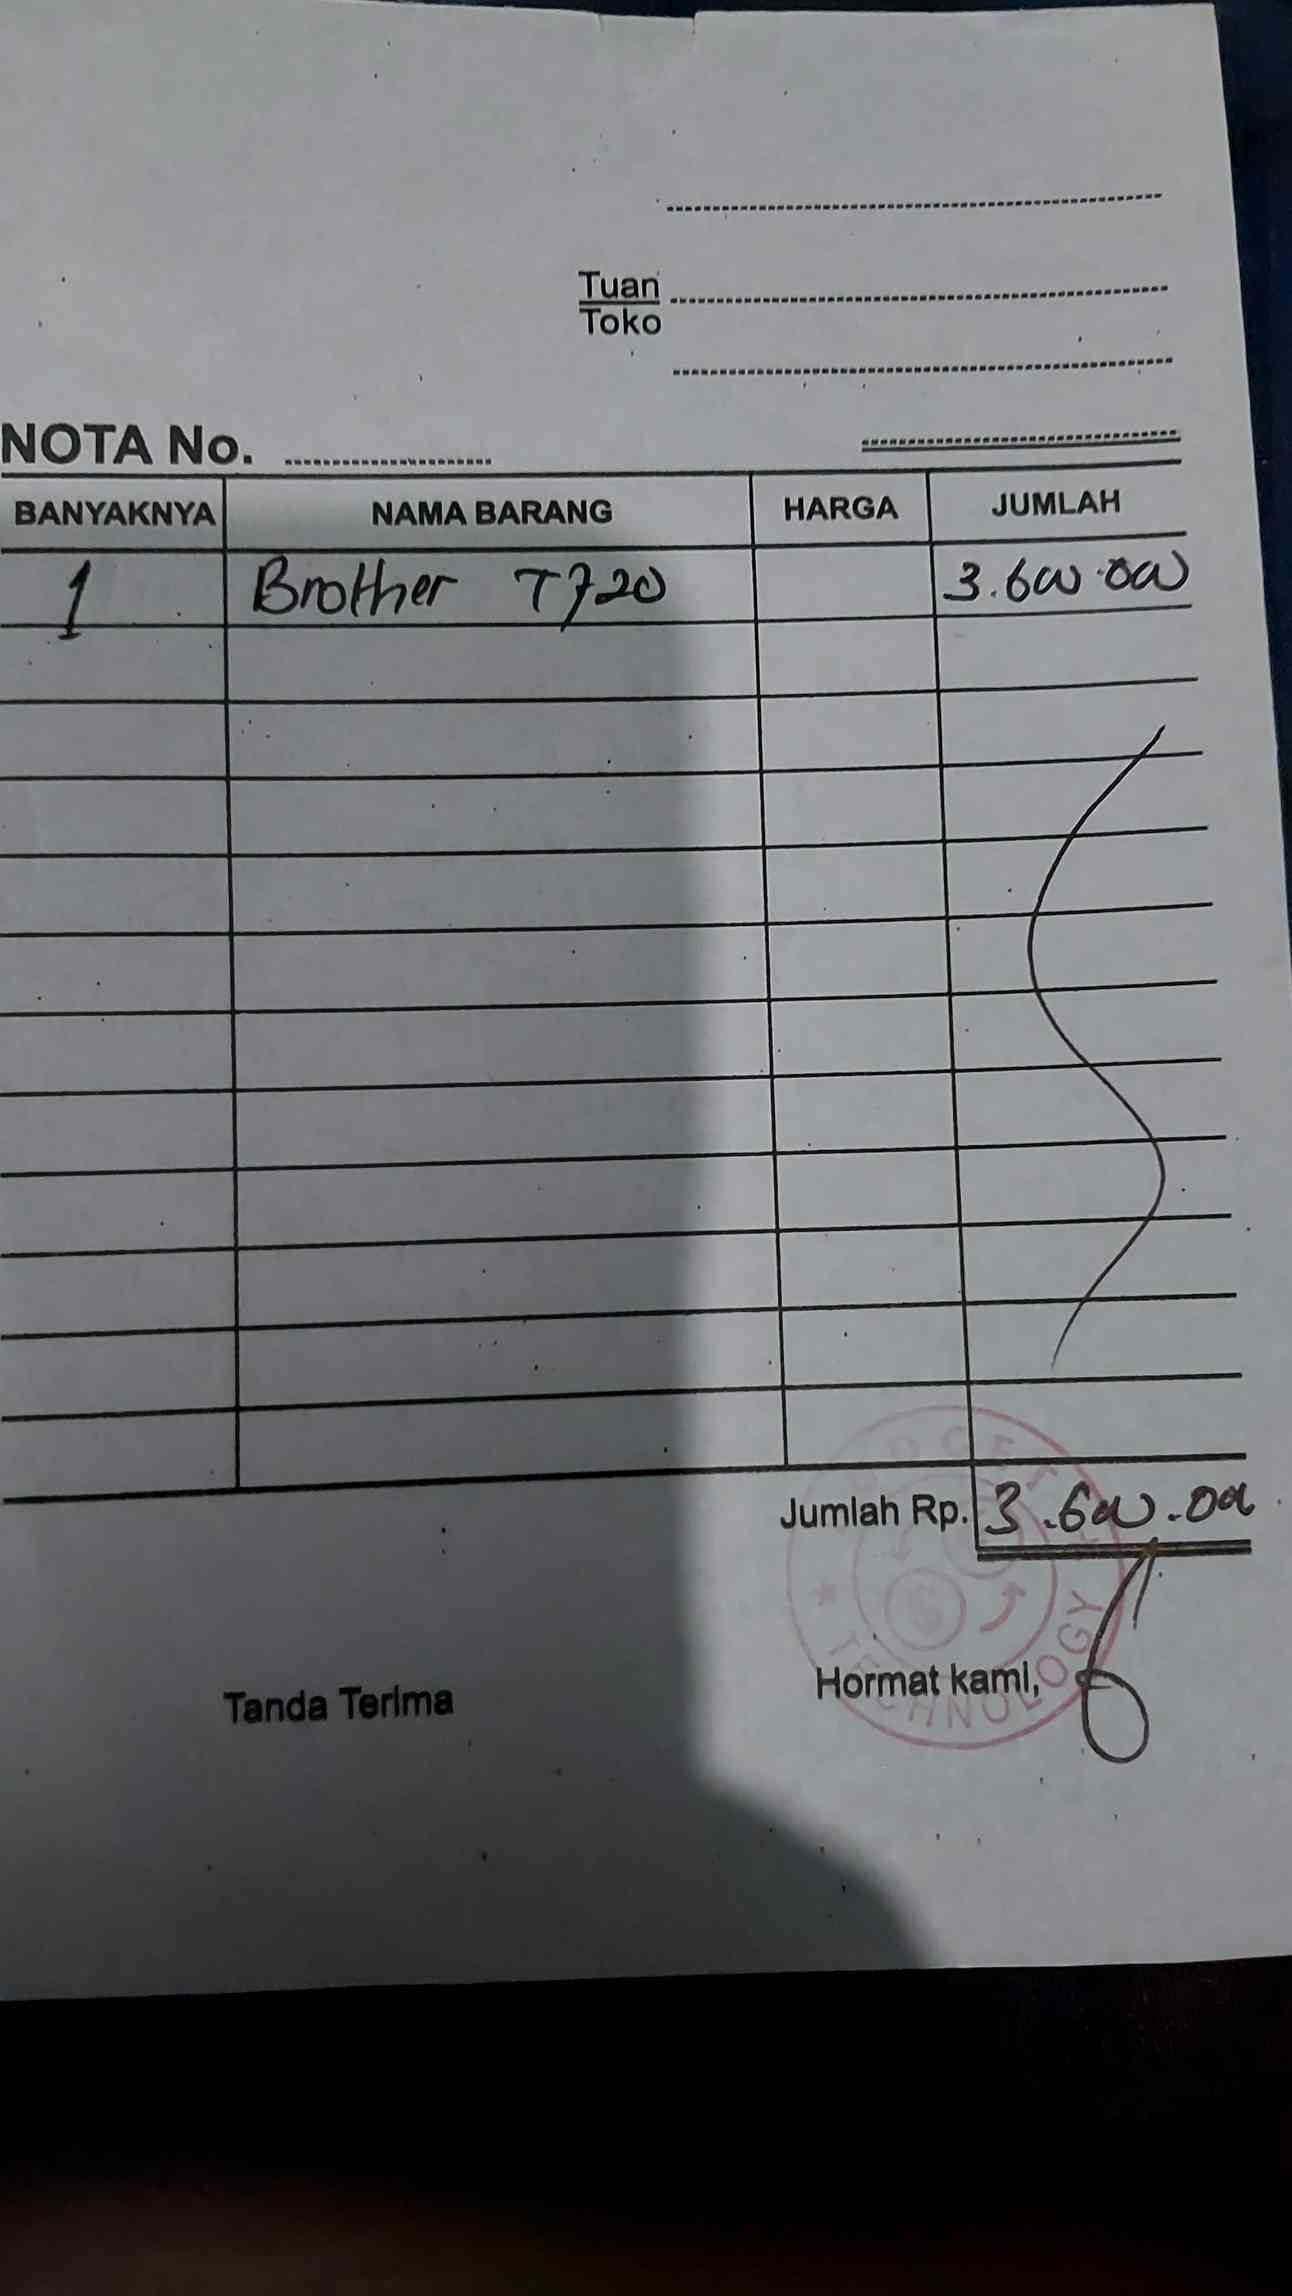 Tuan
Toko
NOTA No.
BANYAKNYA NAMA BARANG HARGA JUMLAH
1 Brother T720 3.600.000
Jumlah Rp. 3.600.000
Tanda Terima Hormat kami,
TECHNOLOGY